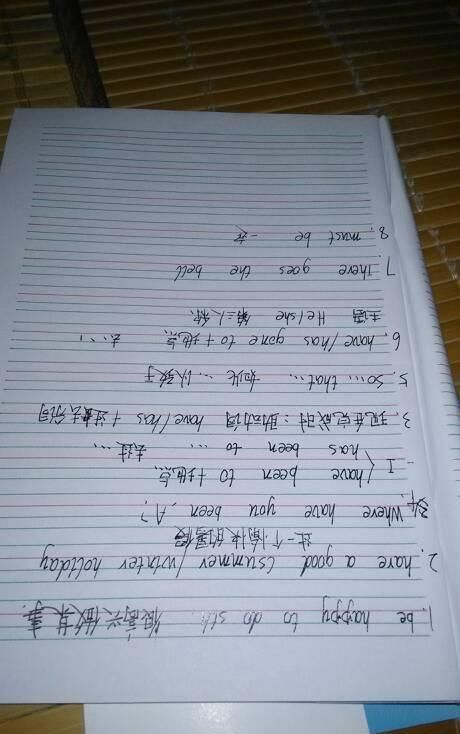 1. be happy to do sth. 很高兴做某事.
2. have a good (summer/winter holiday
过一个愉快的暑假
Where have you been, A?
- I { have been to + 地点
has been to ... 去过...
3. 现在完成时: 助动词 have/has + 过去分词
5. So... that... 如此... 以致于
6. have/has gone to + 地点 去...
主语 He/she 第三人称.
7. There goes the bell
8. must be 一定